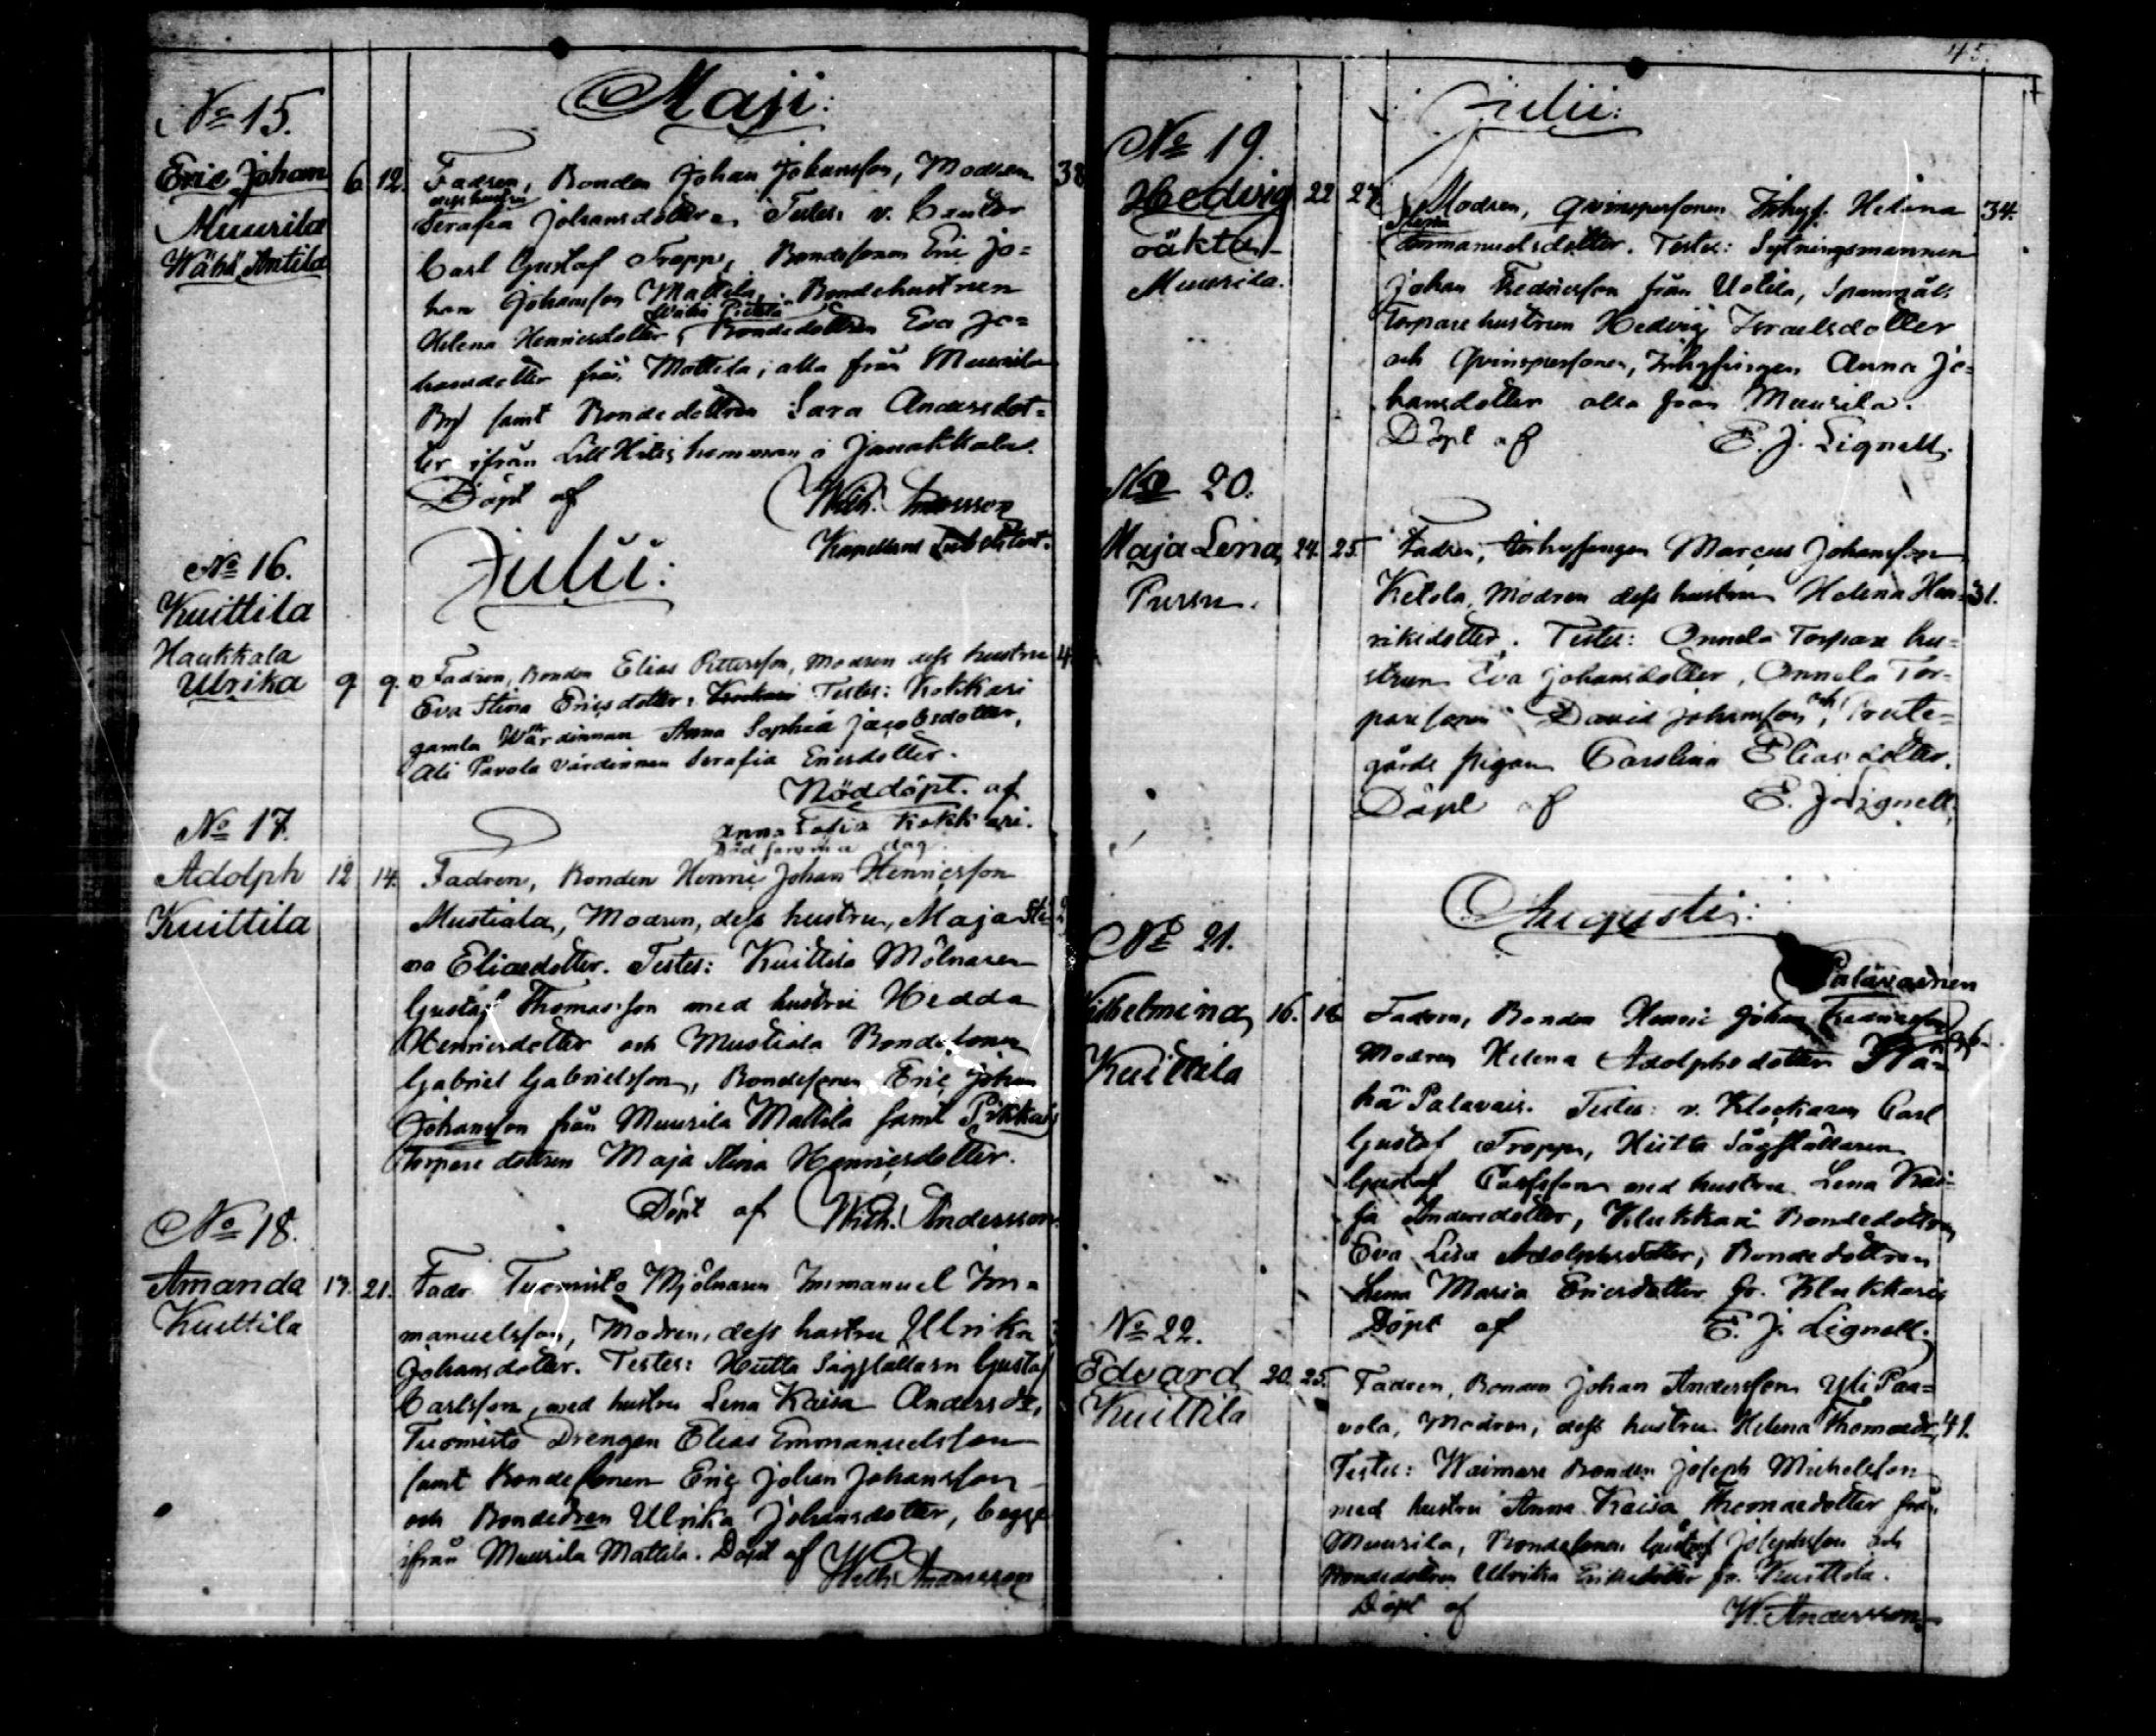 Maji:
No 15.
Eric Johan 6. 12. Fadren, Bonden Johan Johansson, Modren 38
dess hustru
Muurila Serafia Johansdotter. Testes: v. Cantor
Wähä Antila Carl Gustaf Tropp, Bondesonen Eric Jo=
han Johansson Mattila, Bondehustrun
Wähä Pietila
Helena Henricsdotter, Bondedottren Eva Jo=
hansdotter från Mattila, alla från Muurila
By samt Bondedottren Sara Andersdot=
ter ifrån Lill Hiitis hemman i Janakkala.
Döpt af Wilh. Andersson
Kapellans Substitut.
Julii:
No 16.
Kuittila
Haukkala
Ulrika 9 9. Fadren, Bonden Elias Pettersson, Modren dess hustru 4
Eva Stina Ericsdotter. Testes: Kokkari
gamla Wärdinnan Anna Sophia Jacobsdotter,
Ali Pavola värdinnan Serafia Ericsdotter.
Nöddöpt af
Anna Sofia Kokkari.
Död samma dag.
No 17.
Adolph 12 14. Fadren, Bonden Henric Johan Henricsson
Kuittila Mustiala, Modren, dess hustru, Maja Sti=
na Eliasdotter. Testes: Kuittila Mölnaren
Gustaf Thomasson med hustru Hedda
Henricsdotter och Mustiala Bondesonen
Gabriel Gabrielsson, Bondesonen Eric Johan
Johansson från Muurila Mattila samt Pikkas
Torpare dottren Maja Stina Henricsdotter.
Döpt af Wilh. Andersson.
No 18.
Amanda 17. 21. Fadr. Tuomisto Mjölnaren Immanuel Im=
Kuittila manuelsson, Modren, dess hustru Ulrika
Johansdotter. Testes: Hutta Sågställarn Gustaf
Carlsson, med hustru Lena Kaisa Andersdr,
Tuomisto Drengen Elias Emmanuelsson
samt Bondesonen Eric Johan Johansson
och Bondedren Ulrika Johansdotter, begge
ifrån Muurila Mattila. Döpt af Wilh. Andersson
45.
Julii:
No 19.
Hedvig 22 27. Modren, Qvinspersonen Inhys. Helena 34.
oäkta Emmanuelsdotter. Testes: Sytningsmannen
Muurila. Johan Fredricsson från Uotila, Spannmåls
Torpare hustrun Hedvig Israelsdotter
och Qvinspersonen, Inhysingen Anna Jo=
hansdotter alla från Muurila.
Döpt af E. J. Lignell.
No 20.
Maja Lena 24. 25. Fadren, Inhysingen Marcus Johansson
Pursu. Ketola, Modren dess hustru Helena Hen= 31.
riksdotter. Testes: Onnela Torpare hu=
strun Eva Johansdotter, Onnela Tor=
paresonen David Johansson och, Prute=
gårds pigan Carolina Eliasdotter.
Döpt af E. J. Lignell.
Augusti:
No 21.
Palavainen
Wilhelmina 16. 16 Fadren, Bonden Henric Johan Fredricsson
Kuittila Modren Helena Adolphsdotter Wä= 36.
hä Palavais. Testes: v. Klockaren Carl
Gustaf Tropp, Hiitta Sågställaren
Gustaf Carlsson med hustru Lena Kai=
sa Andersdotter, Klukkari Bondedottren
Eva Lisa Adolphsdotter, Bondedottren
Lena Maria Ericsdotter fr. Klukkari
Döpt af E. J. Lignell.
No 22.
Edvard 20. 25. Fadren, Bonden Johan Andersson Yli Paa=
Kuittila vola, Modren, dess hustru Helena Thomasdr, 41.
Testes: Waimare Bonden Joseph Michelsson
med hustru Anna Kaisa Thomasdotter från
Muurila, Bondesonen Gustaf Josephsson och
Bondedottren Ulrika Ericsdotter fr. Kuittila.
Döpt af W. Andersson.